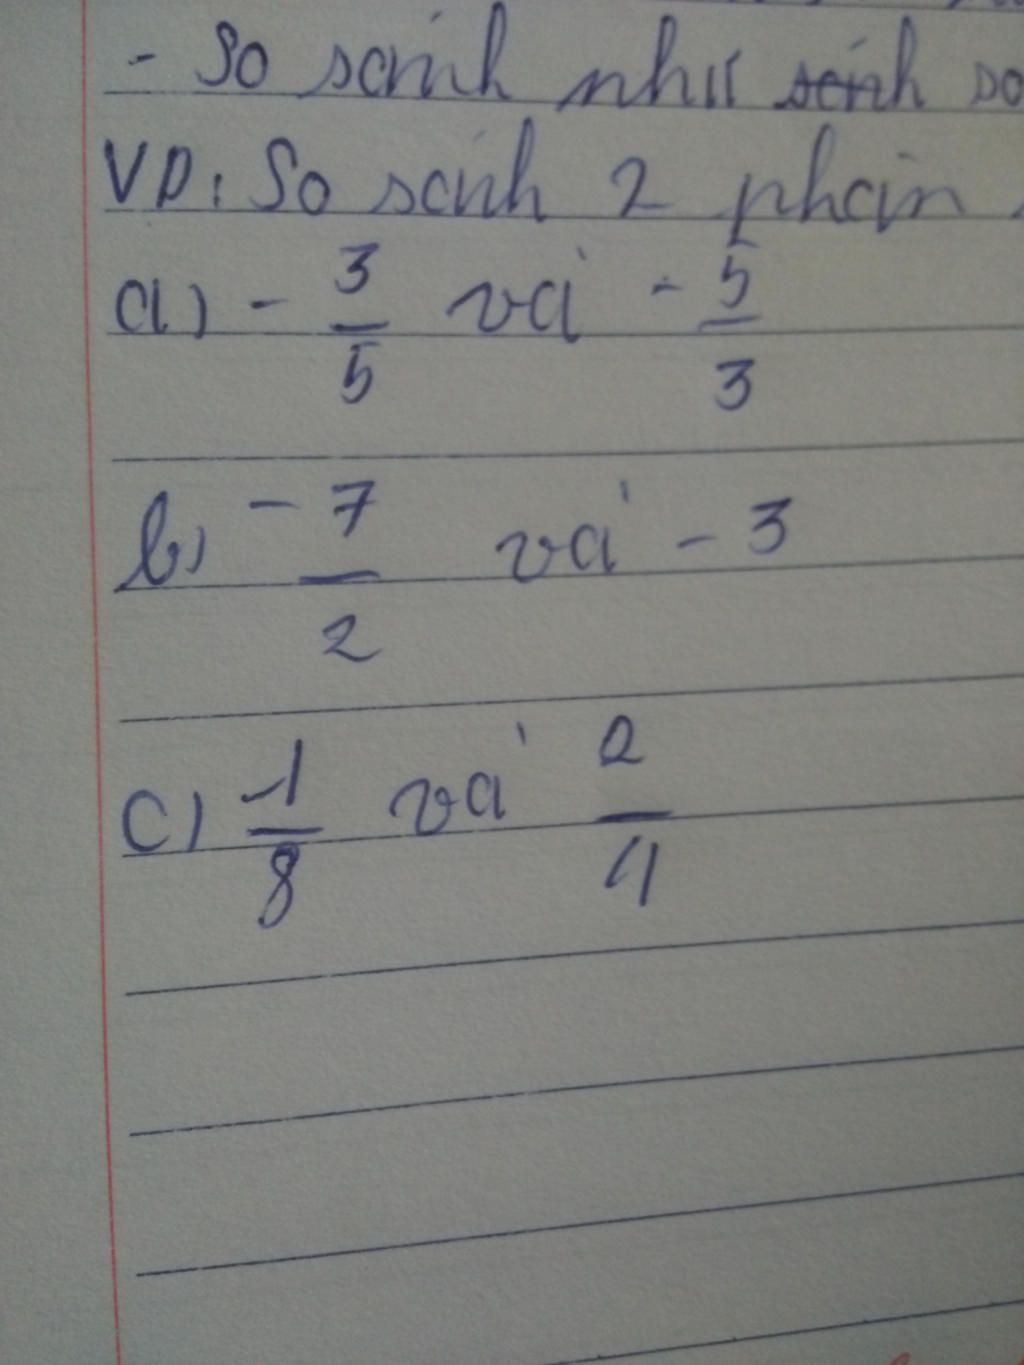 - So sánh như sánh so
VD: So sánh 2 phân
a) - 3/5 và - 5/3
b) -7/2 và -3
c) -1/8 và 2/4